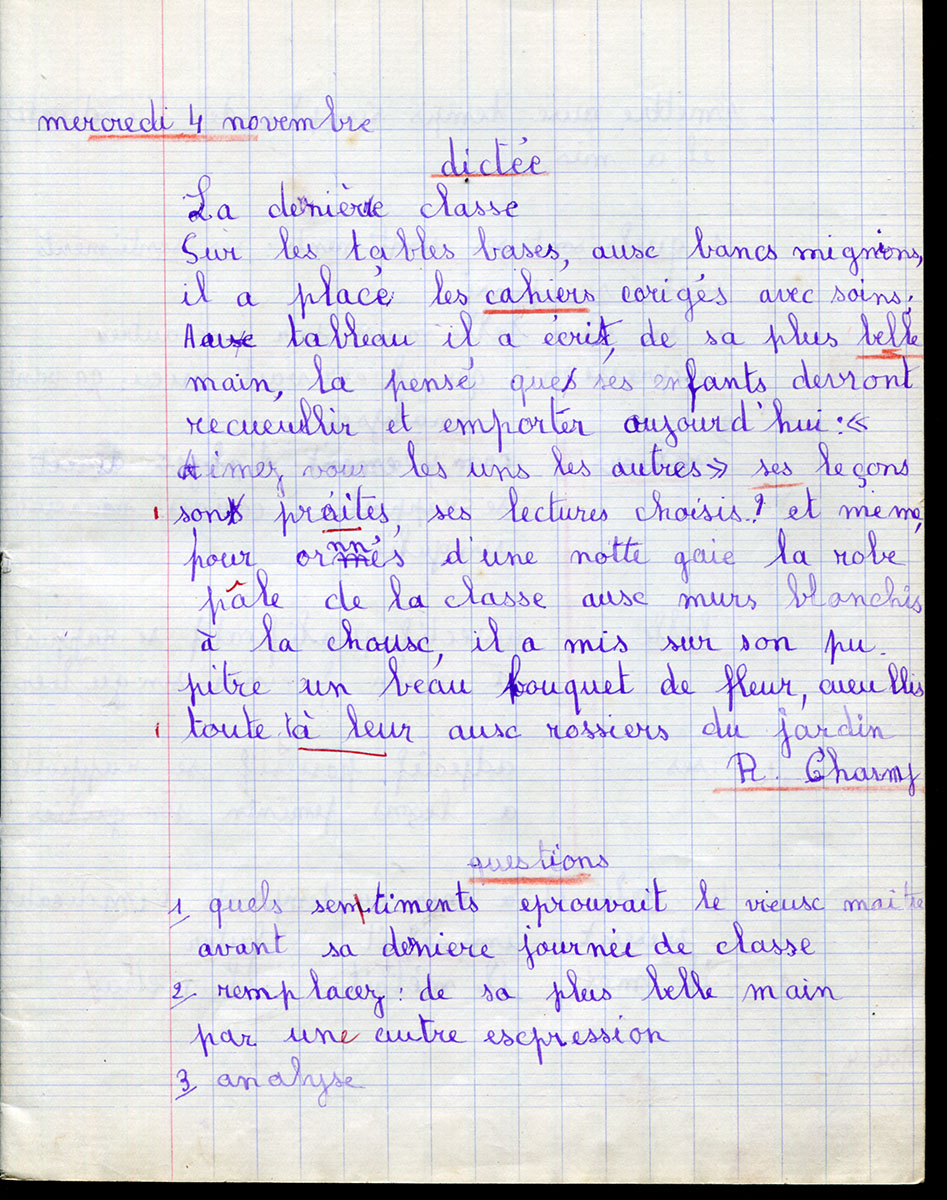 mercredi 4 novembre
dictée
La dernière classe
Sur les tables bases, aux bancs mignions,
il a placé les cahiers corigés avec soins;
Aux tableau il a écrit, de sa plus belle
main, la pensé que ses enfants devront
recueullir et emporter aujourd'hui : «
Aimez vous les uns les autres» ses leçons
sont praites, ses lectures choisis.? et même,
pour ornnés d'une notte gaie la robe
pâle de la classe aux murs blanchis
à la choux, il a mis sur son pu-
pitre un beau bouquet de fleur, cueullis
toute tà leur aux rossiers du jardin
R. Charmy
questions
1 quels sentiments eprouvait le vieux maitre
avant sa derniere journée de classe
2 remplacez : de sa plus belle main
par une autre expression
3 analyse